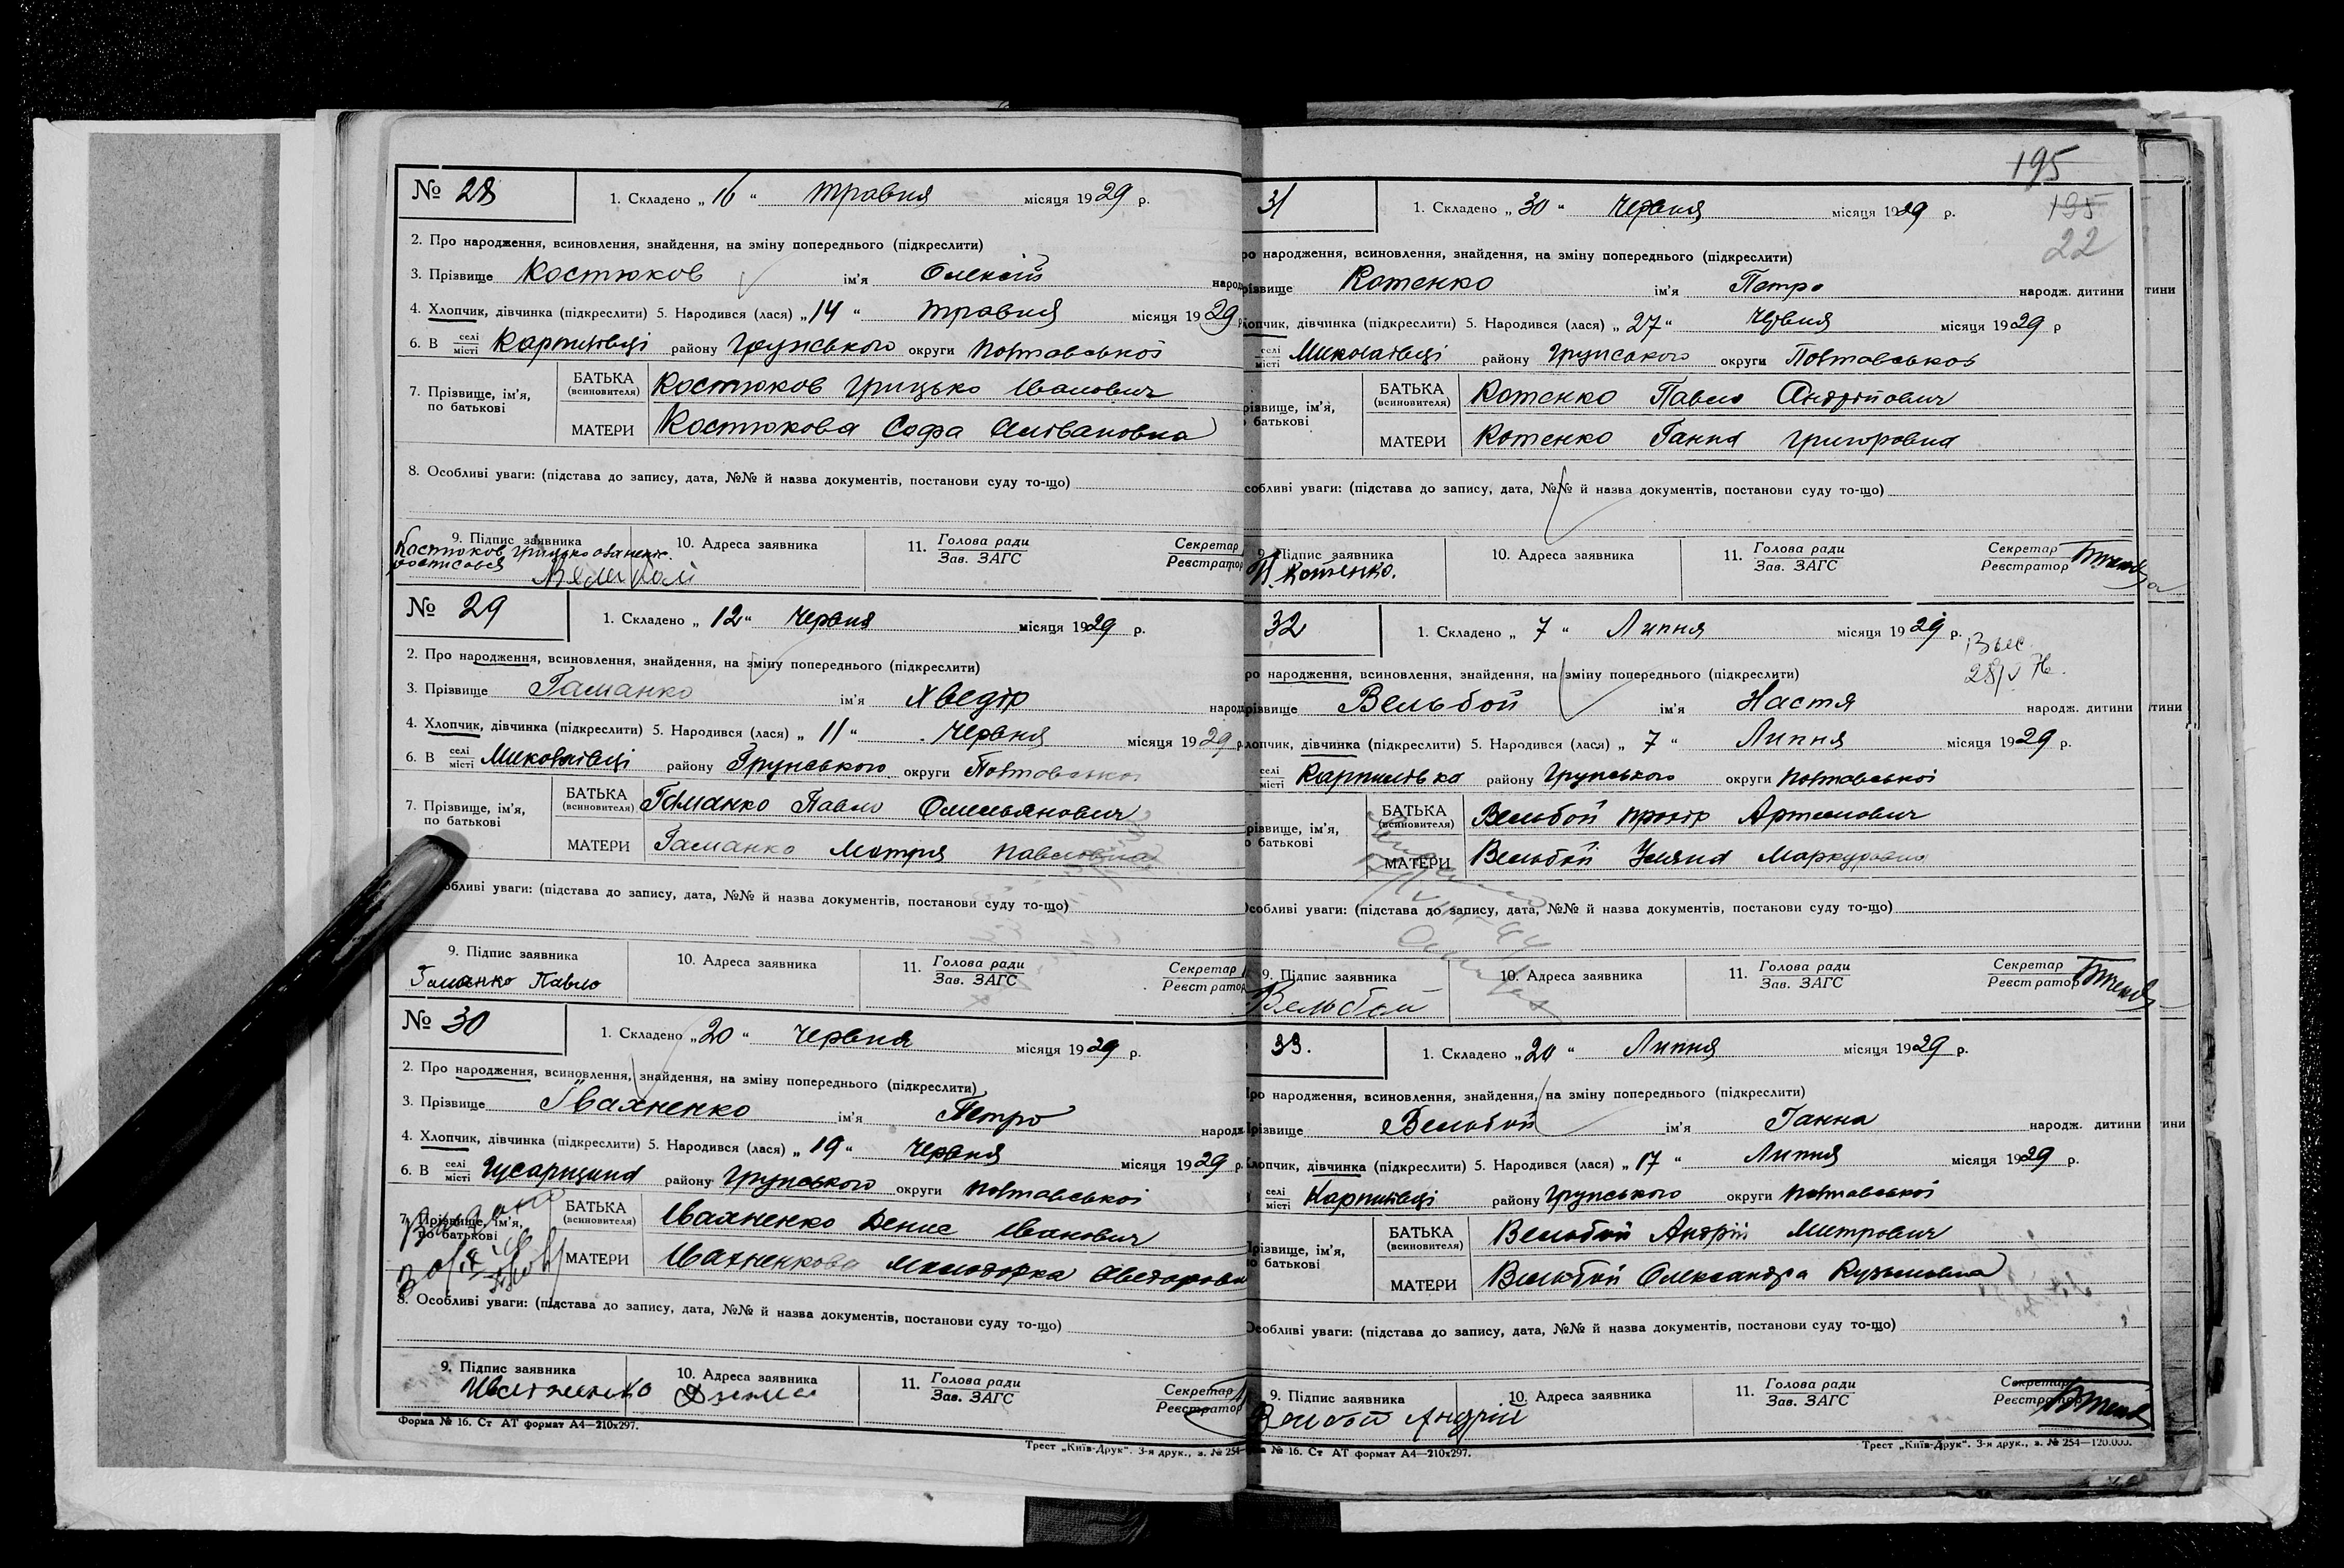 № 28
1. Складено „ 16 “ травня місяця 1929 р.
2. Про народження, всиновлення, знайдення, на зміну попереднього (підкреслити)
3. Прізвище Костюков ім'я Олексій народ
4. Хлопчик, дівчинка (підкреслити) 5. Народився (лася) „ 14 “ травня місяця 1929 р
6. В селі місті Карпилівці району Грунського округи Полтавської
7. Прізвище, ім'я, по батькові
БАТЬКА (всиновителя) Костюков Грицько Иванович
МАТЕРИ Костюкова Софа
8. Особливі уваги: (підстава до запису, дата, №№ й назва документів, постанови суду то-що)
9. Підпис заявника 10. Адреса заявника 11. Голова ради Зав. ЗАГС Секретар Реєстратор
Костюков Грицько
№ 29
1. Складено „ 12 “ Червня місяця 1929 р.
2. Про народження, всиновлення, знайдення, на зміну попереднього (підкреслити)
3. Прізвище Гаманко ім'я Хведір народ
4. Хлопчик, дівчинка (підкреслити) 5. Народився (лася) „ 11 “ Червня місяця 1929 р.
6. В селі місті Миколаївці району Грунського округи Полтавської
7. Прізвище, ім'я, по батькові
БАТЬКА (всиновителя) Гаманко Павло Омельянович
МАТЕРИ Гаманко Мотря Павловна
обливі уваги: (підстава до запису, дата, №№ й назва документів, постанови суду то-що)
9. Підпис заявника 10. Адреса заявника 11. Голова ради Зав. ЗАГС Секретар Реєстратор
Гаманко Павло
№ 30
1. Складено „ 20 “ Червня місяця 1929 р.
2. Про народження, всиновлення, знайдення, на зміну попереднього (підкреслити)
3. Прізвище Івахненко ім'я Петро народж
4. Хлопчик, дівчинка (підкреслити) 5. Народився (лася) „ 19 “ Червня місяця 1929 р.
6. В селі місті Гусарщина району Грунського округи Полтавської
7. Прізвище, ім'я, по батькові
БАТЬКА (всиновителя) Ивахненко Денис Иванович
МАТЕРИ Ивахненкова
8. Особливі уваги: (підстава до запису, дата, №№ й назва документів, постанови суду то-що)
9. Підпис заявника 10. Адреса заявника 11. Голова ради Зав. ЗАГС Секретар Реєстратор
Ивахненко Денис
Форма № 16. Ст АТ формат А4—210x297.
Трест „Київ-Друк“. 3-я друк., з. № 254
195
195
22
31
1. Складено „ 30 “ Червня місяця 1929 р.
ро народження, всиновлення, знайдення, на зміну попереднього (підкреслити)
різвище Котенко ім'я Петро народж. дитини
лопчик, дівчинка (підкреслити) 5. Народився (лася) „ 27 “ Червня місяця 1929 р
селі місті Миколаївці району Грунського округи Полтавської
різвище, ім'я, батькові
БАТЬКА (всиновителя) Котенко Павло Андрійович
МАТЕРИ Котенко Ганна Григоровна
собливі уваги: (підстава до запису, дата, №№ й назва документів, постанови суду то-що)
9. Підпис заявника 10. Адреса заявника 11. Голова ради Зав. ЗАГС Секретар Реєстратор
Котенко.
32
1. Складено „ 7 “ Липня місяця 1929 р.
ро народження, всиновлення, знайдення, на зміну попереднього (підкреслити)
різвище Вельбой ім'я Настя народж. дитини
лопчик, дівчинка (підкреслити) 5. Народився (лася) „ 7 “ Липня місяця 1929 р.
селі місті Карпилівка району Грунського округи Полтавської
різвище, ім'я, батькові
БАТЬКА (всиновителя) Вельбой Прокір Артемович
МАТЕРИ Вельбой Уляна
Особливі уваги: (підстава до запису, дата, №№ й назва документів, постанови суду то-що)
9. Підпис заявника 10. Адреса заявника 11. Голова ради Зав. ЗАГС Секретар Реєстратор
Вельбой
33.
1. Складено „ 20 “ Липня місяця 1929 р.
ро народження, всиновлення, знайдення, на зміну попереднього (підкреслити)
різвище Вельбой ім'я Ганна народж. дитини
лопчик, дівчинка (підкреслити) 5. Народився (лася) „ 17 “ Липня місяця 1929 р.
селі місті Карпилівці району Грунського округи Полтавської
різвище, ім'я, батькові
БАТЬКА (всиновителя) Вельбой Андрій Митрович
МАТЕРИ Вельбой Олександра Кузьмовна
Особливі уваги: (підстава до запису, дата, №№ й назва документів, постанови суду то-що)
9. Підпис заявника 10. Адреса заявника 11. Голова ради Зав. ЗАГС Секретар Реєстратор
Вельбой Андрій
№ 16. Ст АТ формат А4—210x297.
Трест „Київ-Друк“. 3-я друк., з. № 254—120.000.